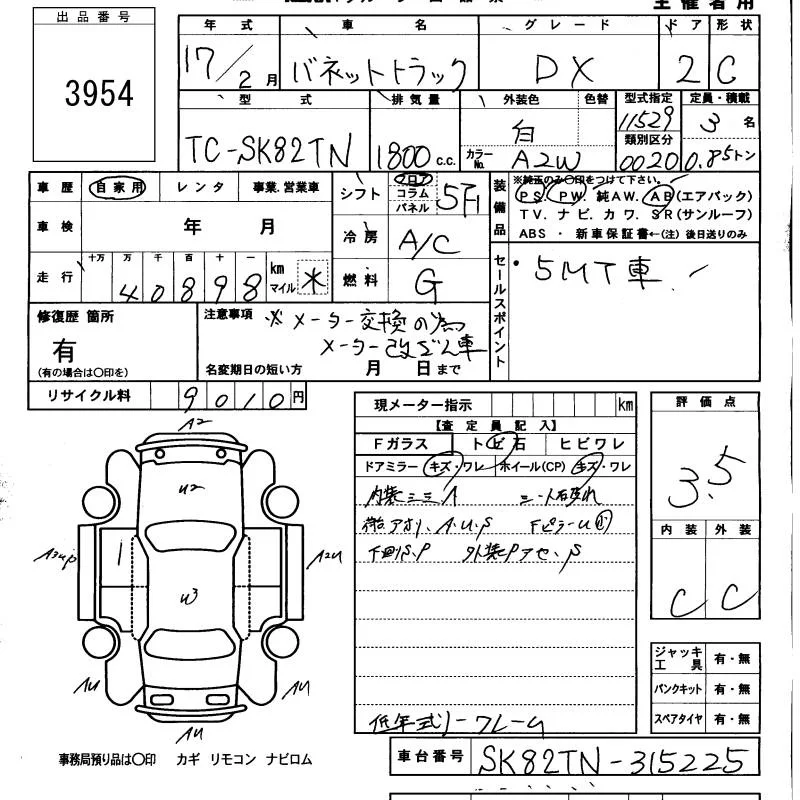 主催者用
出品番号
3954
年式 車名 グレード ドア 形状
17/2月 バネットトラック DX 2 C
型式 排気量 外装色 色替 型式指定 定員・積載
TC-SK82TN 1800 c.c. 白 11529 3名
カラーNo. A2W 類別区分 0020 0.85トン
車歴 自家用 レンタ 事業.営業車
シフト フロア コラム パネル 5F
装備品 ※純正のみ○印をつけて下さい。
PS. PW. 純AW. AB(エアバック)
TV. ナビ. カワ. SR(サンルーフ)
ABS ・ 新車保証書←(注)後日送りのみ
車検 年 月
冷房 A/C
走行 十万 万 千 百 十 一
40898 km マイル ※
燃料 G
セールスポイント
・5MT車
修復歴 箇所
有
(有の場合は○印を)
注意事項 ※メーター交換の為
メーター改ざん車
名変期日の短い方 月 日まで
リサイクル料 9010円
現メーター指示 km
【査定員記入】
Fガラス トビ石 ヒビワレ
ドアミラー キズ・ワレ ホイール(CP) キズ・ワレ
評価点
3.5
内装 外装
C C
A2
U2
A3UP
U3
A2U
AU
AU
AU
ジャッキ工具 有・無
パンクキット 有・無
スペアタイヤ 有・無
低年式ノークレーム
事務局預り品は○印 カギ リモコン ナビロム
車台番号 SK82TN-315225